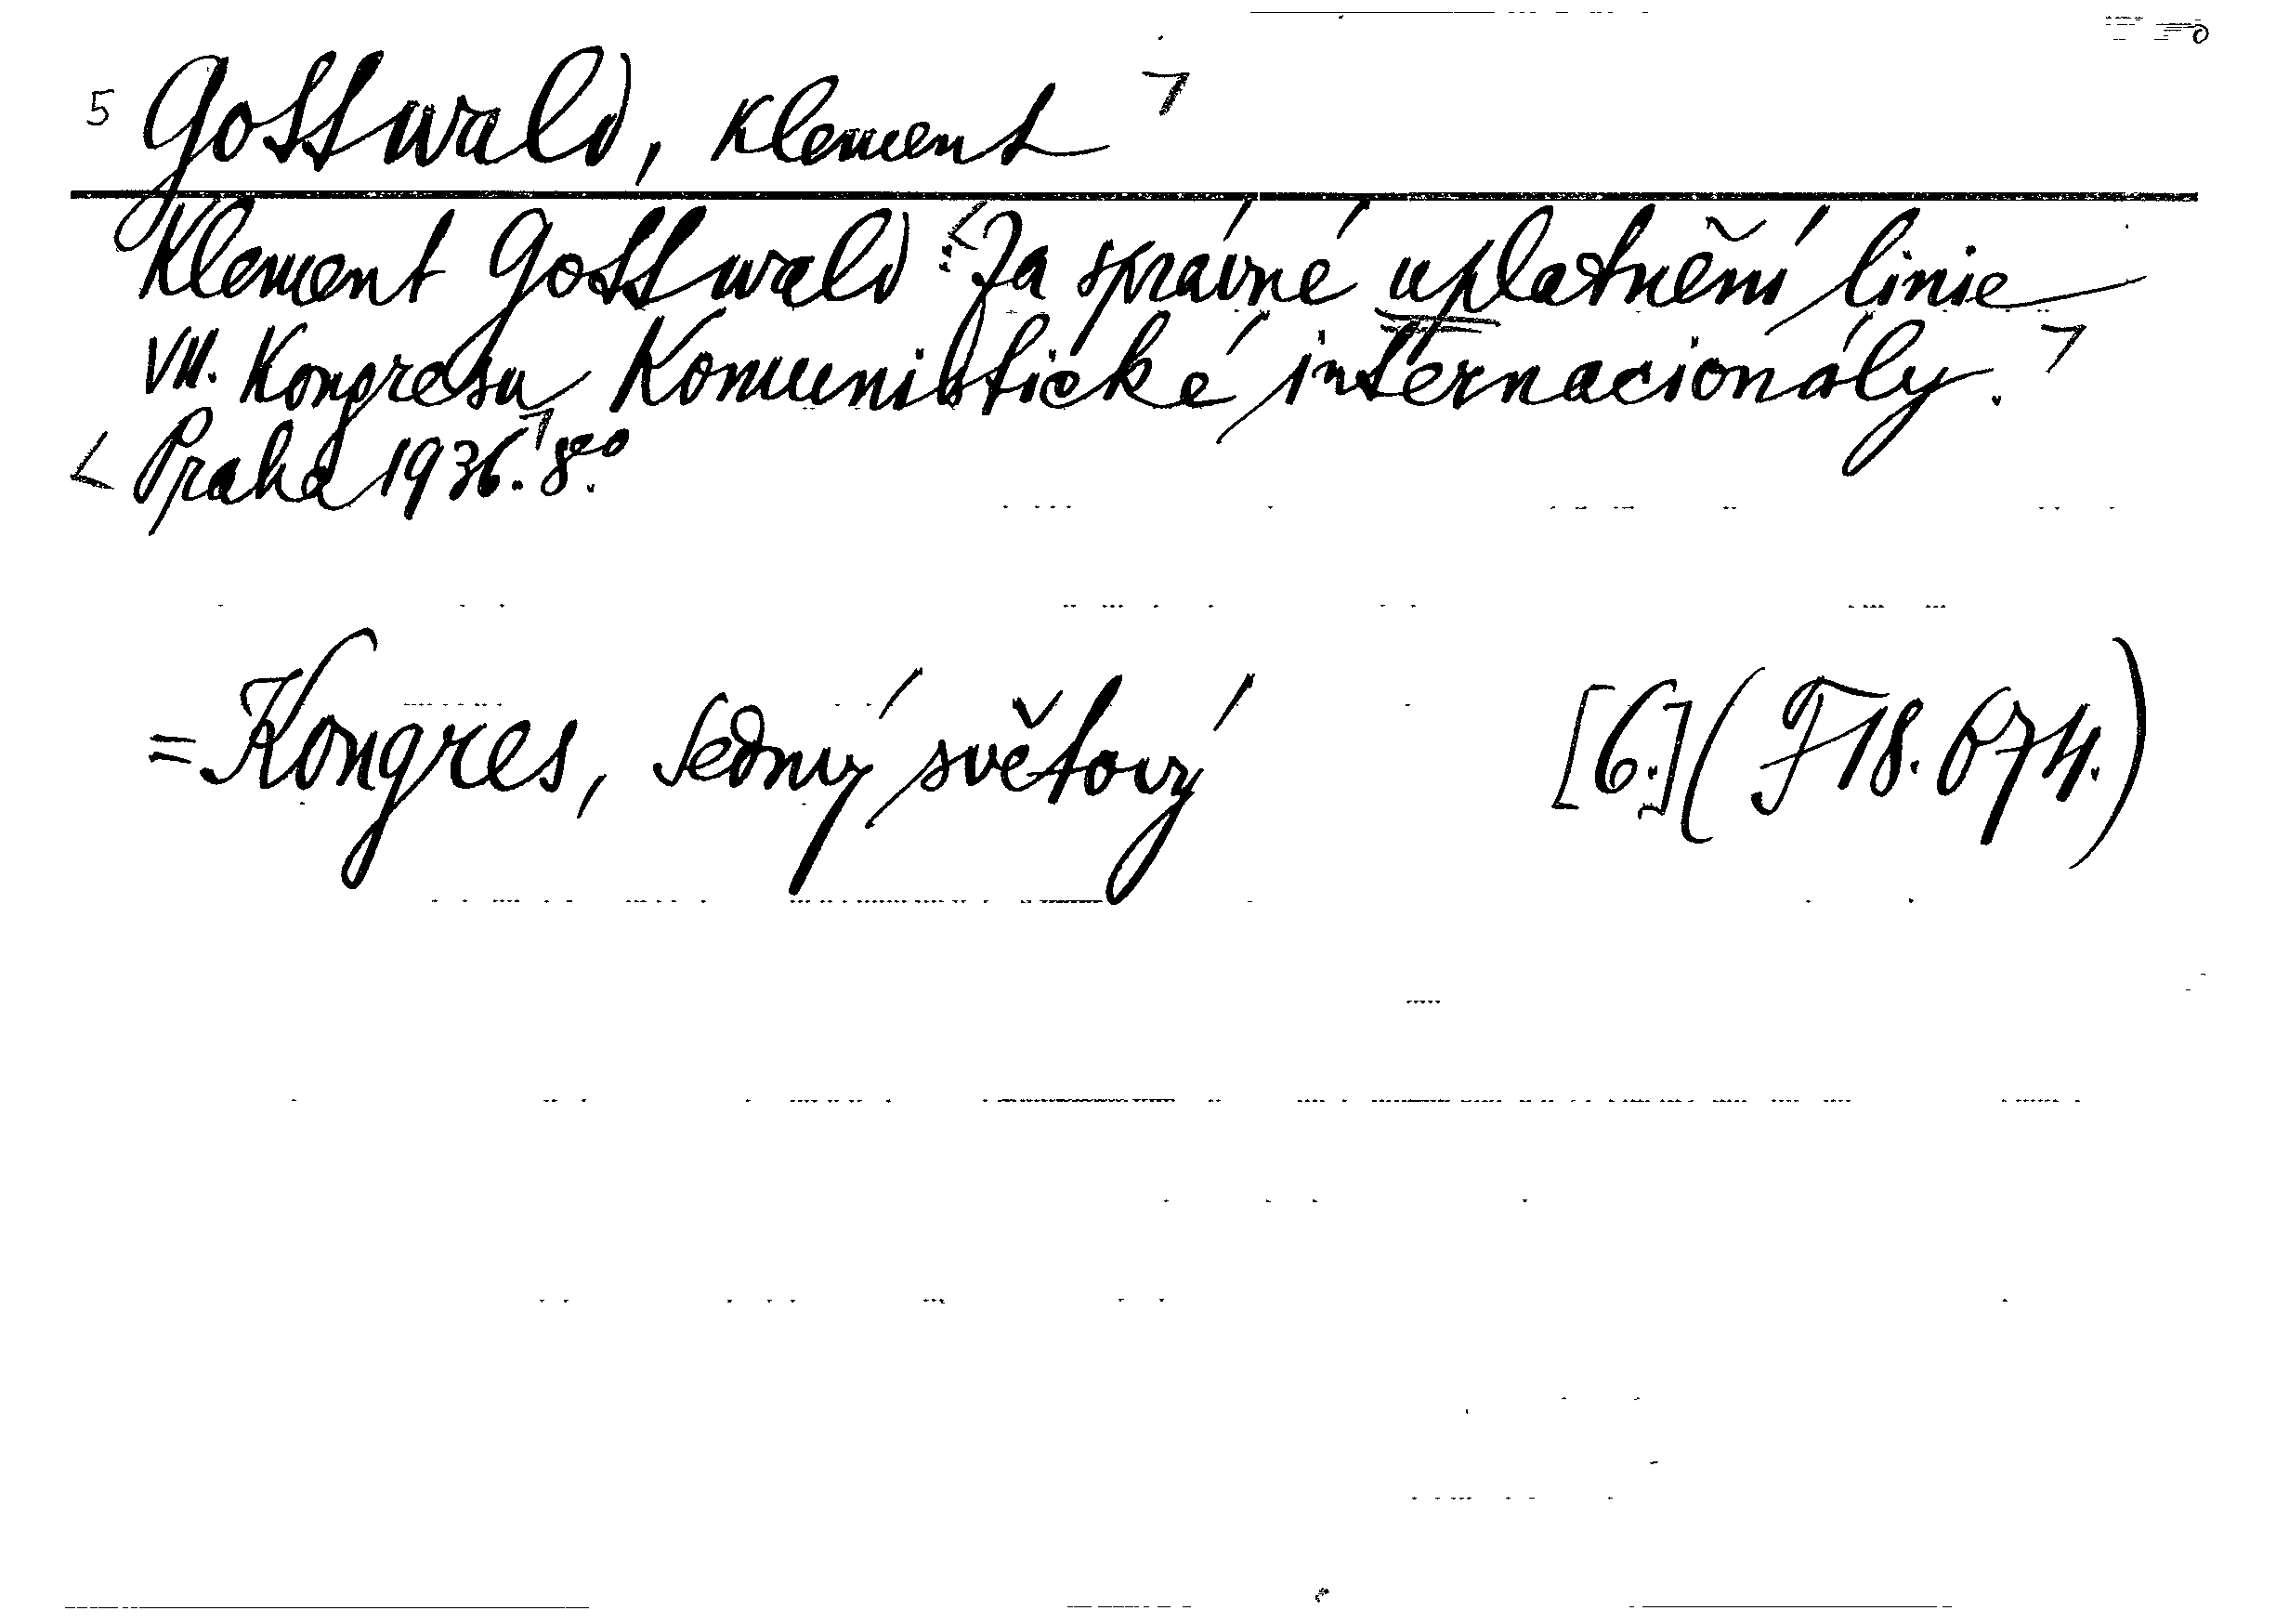 5 Gottwald, Klement ⌝
Klement Gottwald: <Za správné uplatnění linie
VII. Kongresu Komunistické internacionály. ⌝
< Praha 1936.⌝ 8°.
= Kongres, sedmý světový [6.] (F 18.674.)